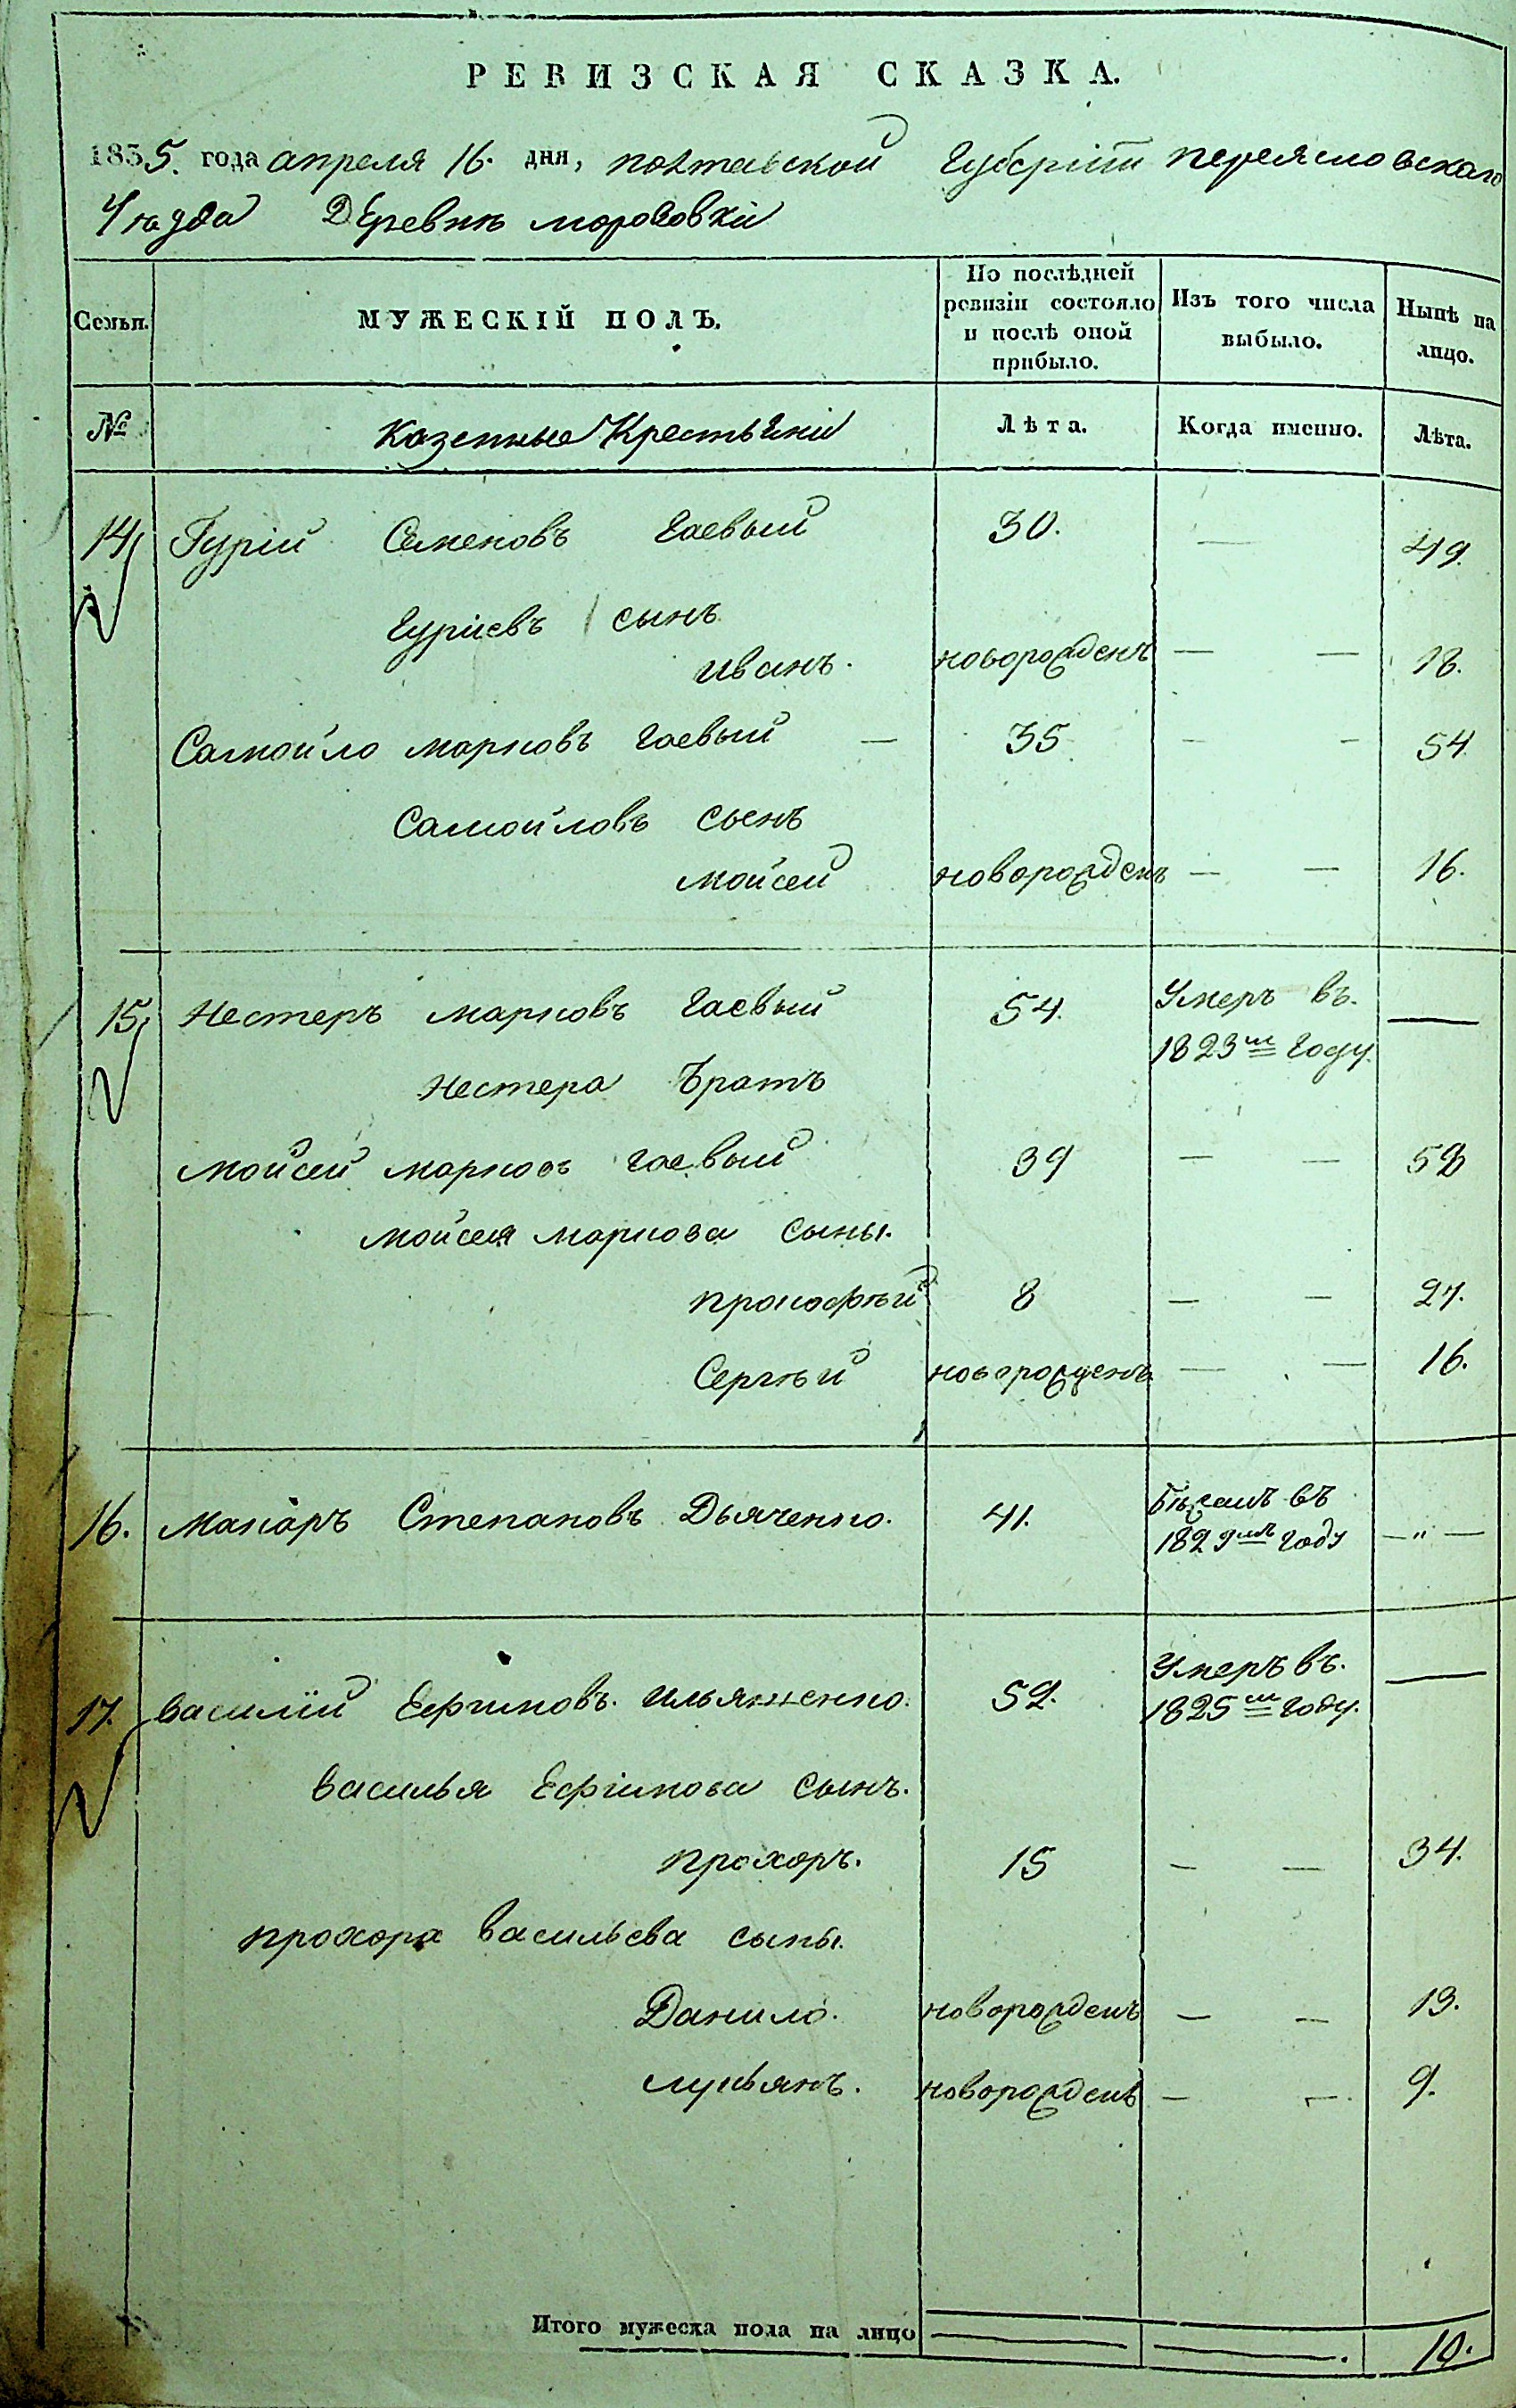 РЕВИЗСКАЯ СКАЗКА.
1835. года апреля 16. дня, полтавской Губерніи переясловскаго
Уѣзда Деревнѣ морозовкы
Семьи. МУЖЕСКІЙ ПОЛЪ. По послѣдней ревизіи состояло и послѣ оной прибыло. Изъ того числа выбыло. Нынѣ на лицо.
№ Казенные Крестьяни Лѣта. Когда именно. Лѣта.
14, Гурій Семеновъ Гаевый 30. — 49.
Гуріевъ сынъ
иванъ. новорожденъ — — 18.
Самойло марковъ гаевый — 35 — — 54
Самойловъ сынъ
мойсей новорожденъ — — 16.
15, Нестеръ марковъ Гаевый 54. Умеръ въ. —
1823м году.
Нестера братъ
мойсей марковъ гаевый 39 — — 58
мойсея маркова сыны.
прокофѣй 8 — — 27.
Сергѣй новорожденъ — — 16.
16. макаръ Степановъ Дьяченко. 41. бѣжалъ въ
1829мъ году — " —
17. василій Ефимовъ. ильяшенко. 59. Умеръ въ. —
1825м году.
василья Ефимова сынъ.
прохоръ. 15 — — 34.
прохора васильева сыны.
Данило. новорожденъ — — 13.
лукьянъ. новорожденъ — — 9.
Итого мужеска пола на лицо — — . 10.